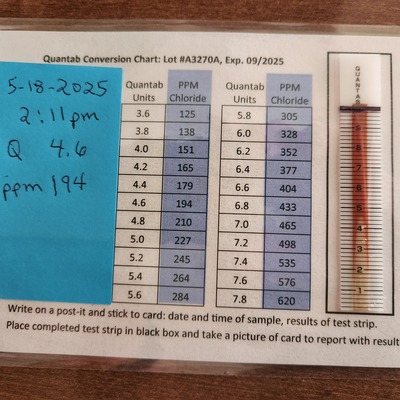 Quantab Conversion Chart: Lot #A3270A, Exp. 09/2025
5-18-2025
2:11pm
Q 4.6
ppm 194
Quantab Units PPM Chloride
3.6 125
3.8 138
4.0 151
4.2 165
4.4 179
4.6 194
4.8 210
5.0 227
5.2 245
5.4 264
5.6 284
Quantab Units PPM Chloride
5.8 305
6.0 328
6.2 352
6.4 377
6.6 404
6.8 433
7.0 465
7.2 498
7.4 535
7.6 576
7.8 620
QUANTAB
9
8
7
6
5
4
3
2
1
Write on a post-it and stick to card: date and time of sample, results of test strip.
Place completed test strip in black box and take a picture of card to report with result